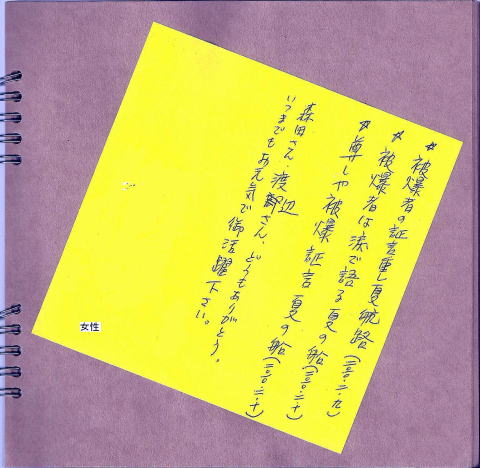 ☆被爆者の証言重し夏航路(二〇〇・二・九)
☆被爆者は涙で語る夏の船(二〇〇・二・十)
☆尊しや被爆証言夏の船(二〇〇・二・十)
森田さん、渡辺さん、どうもありがとう。
いつまでもお元気で御活躍下さい。
女性